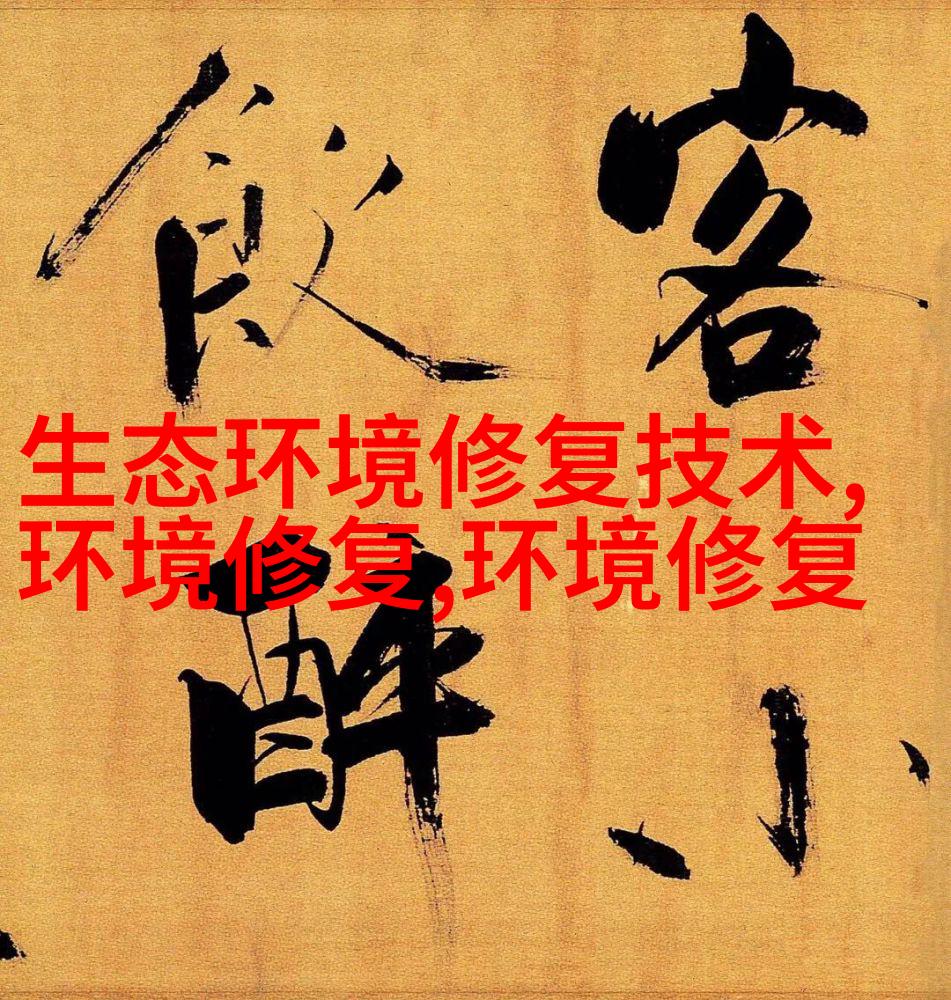 客小
飲醉
生态环境修复技术,
环境修复,环境修复